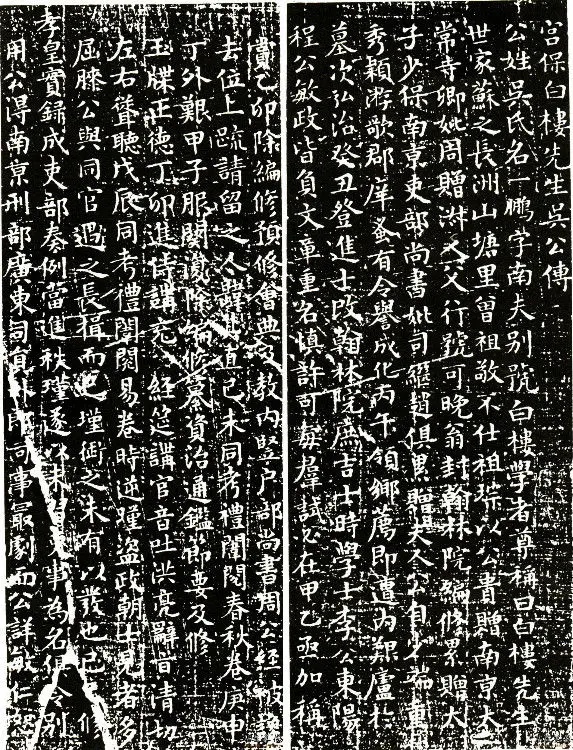 宫保白樓先生吳公傳
公姓吳氏名一鵬字南夫别號白樓學者尊稱曰白樓先生
世家蘇之長洲山塘里曾祖敬不仕祖琮以公貴贈南京太
常寺卿妣周贈淑人父行號可晚翁封翰林院編修累贈太
子少保南京吏部尚書妣司繼趙俱累贈夫人公自少端重
秀穎游歌郡庠蚤有令譽成化丙午領鄉薦即遭内艱廬於
墓次弘治癸丑登進士改翰林院庶吉士時學士李公東陽
程公敏政皆負文章重名慎許可每羣試必在甲乙亟加稱
賞乙卯除編修預修會典及教内竪户部尚書周公經被讒
去位上疏請留之人韙其直己未同考禮闈閱春秋卷庚申
丁外艱甲子服闋復除編修纂資治通鑑節要及修
玉牒正德丁卯進侍講充經筵講官音吐洪亮辭旨清切
左右聳聽戊辰同考禮闈閱易卷時逆瑾盜政朝士見者多
屈膝公與同官遇之長揖而已瑾銜之未有以發也己巳修
孝皇實錄成吏部奏例當進秩瑾遂以未習吏事為名俱令别
用公得南京刑部廣東司員外郎司事最劇而公詳敏仁恕